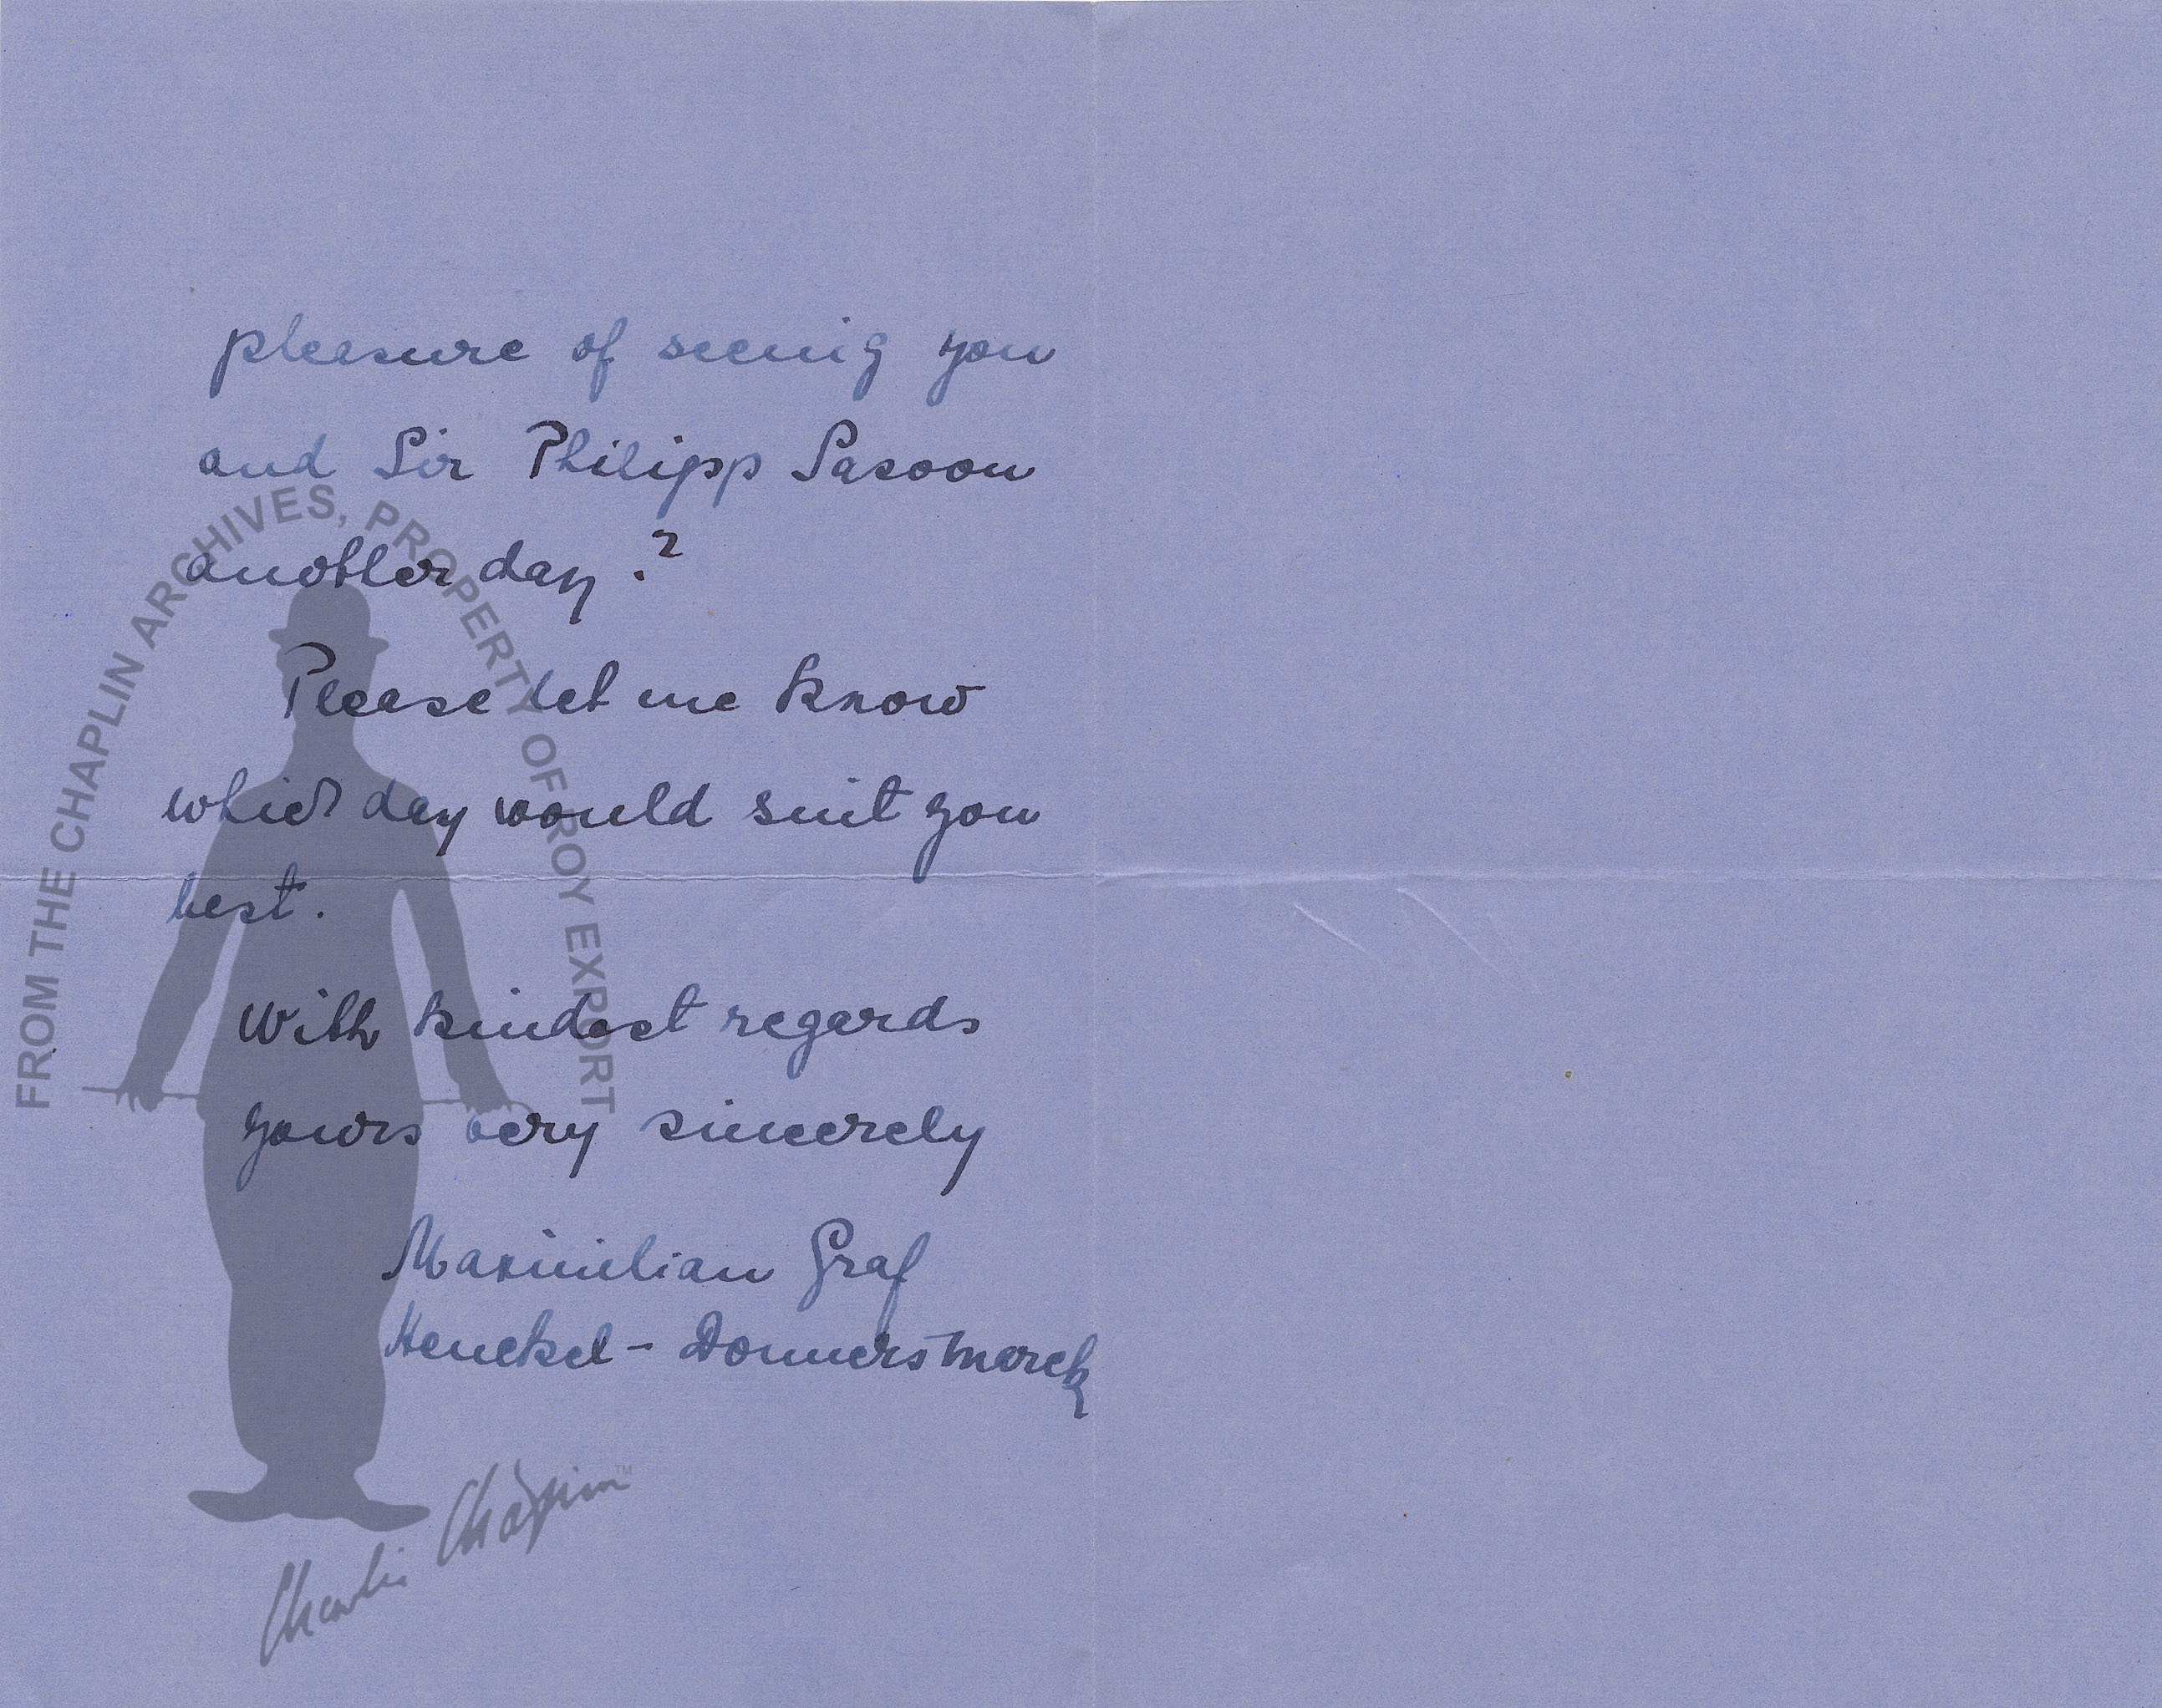 pleasure of seeing you
and Sir Philipp Sasoon
another day.?
Please let me know
which day would suit you
best.
With kindest regards
yours very sincerely
Maximilian Graf
Henckel-Donnersmarck
FROM THE CHAPLIN ARCHIVES, PROPERTY OF ROY EXPORT
Charlie Chaplin™